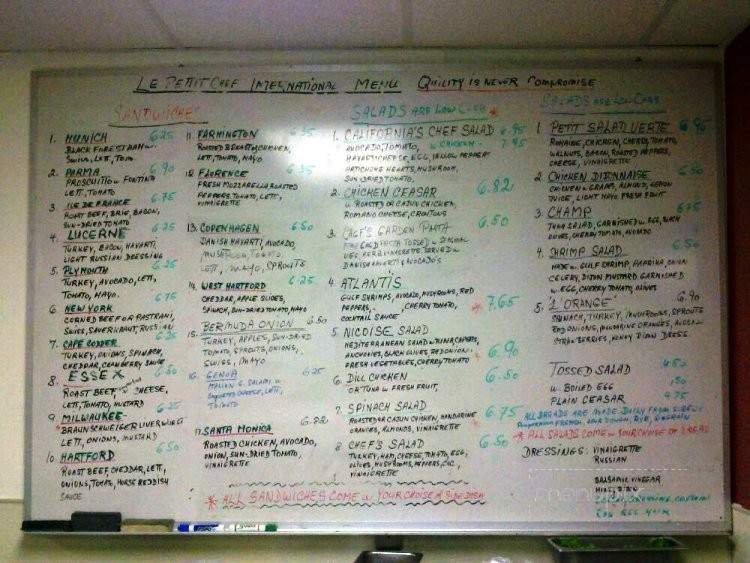 LE PETIT CHEF INTERNATIONAL MENU QUILITY IS NEVER COMPROMISE
SANDWICHES
1. MUNICH 6.25
BLACK FOREST HAM W.
SWISS, LETT, TOM.
2. PARMA 6.90
PROSCIUTTO W FONTINA
LETT, TOMATO
3. ILE DE FRANCE 6.75
ROAST BEEF, BRIE, BACON,
SUN-DRIED TOMATO
4. LUCERNE 6.25
TURKEY, BACON, HAVARTI,
LIGHT RUSSIAN DRESSING
5. PLYMOUTH 6.25
TURKEY, AVOCADO, LETT,
TOMATO, MAYO.
6. NEW YORK 6.75
CORNED BEEF OR PASTRAMI,
SWISS, SAUERKRAUT, RUSSIAN
7. CAPE CODDER 6.25
TURKEY, ONIONS, SPINACH,
CHEDDAR, CRANBERRY SAUCE
8. ESSEX 6.50
ROAST BEEF CHEESE,
LETT, TOMATO, MUSTARD
9. MILWAUKEE 6.25
BRAUNSCHWEIGER LIVERWURST
LETT, ONIONS, MUSTARD
10. HARTFORD 6.50
ROAST BEEF, CHEDDAR, LETT,
ONIONS, TOMATO, HORSE REDDISH
SAUCE
11. FARMINGTON 6.35
ROASTED BREAST OF CHICKEN,
LETT, TOMATO, MAYO
12. FLORENCE 6.35
FRESH MOZZARELLA ROASTED
PEPPERS TOMATO, LETT,
VINAIGRETTE
13. COPENHAGEN 6.50
DANISH HAVARTI, AVOCADO,
MUSHROOM, TOMATO
LETT, MAYO, SPROUTS
14. WEST HARTFORD 6.25
CHEDDAR, APPLE SLICES,
SPINACH, SUN-DRIED TOMATO, MAYO
15. BERMUDA ONION 6.50
TURKEY, APPLES, SUN-DRIED
TOMATO, SPROUTS, ONIONS,
SWISS, MAYO
16. GENOA 6.25
ITALIAN G. SALAMI W
CHEESE, LETT,
TOMATO
17. SANTA MONICA 6.82
ROASTED CHICKEN, AVOCADO,
ONION, SUN-DRIED TOMATO,
VINAIGRETTE
* ALL SANDWICHES COME W YOUR CHOISE OF SIDE DISH
SALADS ARE LOW CARB *
1. CALIFORNIA'S CHEF SALAD 6.95
AVOCADO, TOMATO, W CHICKEN - 7.95
HAVARTI CHEESE, EGG, YELLOW PEPPERS
ARTICHOKE HEARTS, MUSHROOM,
SUN-DRIED TOMATO,
2. CHICHEN CEASAR 6.82
W ROASTED OR CAJUN CHICKEN,
ROMANO CHEESE, CROUTONS
3. CHEF'S GARDEN PASTA 6.50
PASTA TOSSED W SEASONAL
VEG, HERB VINAIGRETTE SERVED W
DANISH HAVARTI & AVOCADOS
4. ATLANTIS
GULF SHRIMPS, AVOCADO, MUSHROOMS, RED
PEPPERS, CHERRY TOMATO, * 7.65
COCKTAIL SAUCE
5. NICOISE SALAD
MEDITERRANEAN SALAD W TUNA, CAPERS,
ANCHOVIES, BLACK OLIVES RED ONION * 6.90
FRESH VEGETABLES, CHERRY TOMATO
6. DILL CHICKEN 6.50
OR TUNA W FRESH FRUIT,
7. SPINACH SALAD 6.75
ROASTED OR CAJUN CHICKEN, MANDARINE
ORANGES, ALMONDS, VINAIGRETTE
8. CHEF'S SALAD 6.50
TURKEY, HAM, CHEESE, TOMATO, EGG,
OLIVES, MUSHROOMS, PEPPERS, CUC,
VINAIGRETTE
SALADS ARE LOW CARB
1. PETIT SALAD VERTE 6.95
ROMAINE, CHICKEN, CHERRY, TOMATO,
WALNUTS, BACON, ROASTED PEPPERS,
CHEESE, VINAIGRETTE
2. CHICKEN DIJONNAISE 6.50
CHICKEN W GRAPES, ALMOND, LEMON
JUICE, LIGHT MAYO FRESH FRUIT
3. CHAMP 6.75
TUNA SALAD, GARNISHED W EGG, BLACK
OLIVES, CHERRY TOMATO, AVOCADO
4. SHRIMP SALAD 6.50
MADE W GULF SHRIMP, PAPRIKA, ONION
CELERY, DIJON MUSTARD GARNISHED
W EGG, CHERRY TOMATO, OLIVES
5. L'ORANGE' 6.90
SPINACH, TURKEY, MUSHROOMS, SPROUTS
RED ONIONS, MANDARINE ORANGES,
STRAWBERRIES, HONEY DIJON DRESS
TOSSED SALAD 4.50
W. BOILED EGG .50
PLAIN CEASAR 4.75
ALL BREADS ARE MADE DAILY FROM
FRENCH, SOUR DOUGH, RYE,
* ALL SALADS COME W YOUR CHOISE OF BREAD
DRESSINGS: VINAIGRETTE
RUSSIAN
BALSAMIC VINEGAR